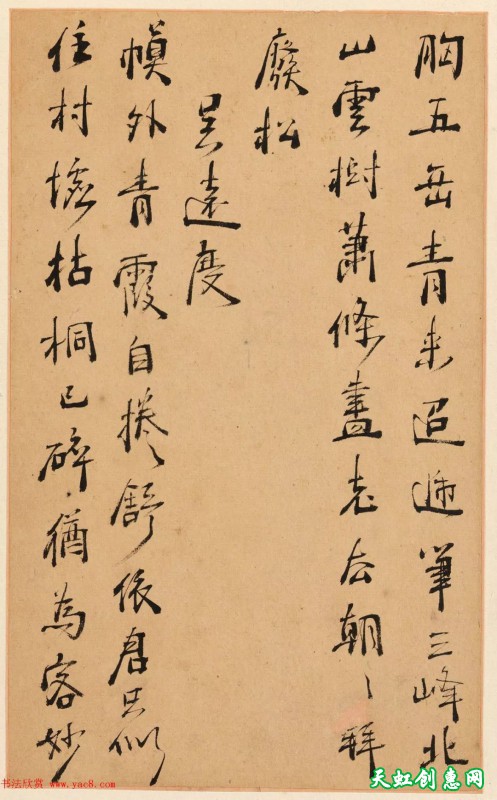 胸五岳青来迢遞筆三峰北
山雲樹蕭條盡老去朝〻拜
廢松
吳遠度
幀外青霞自捲舒依君只似
住村墟枯桐已碎猶為客妙
书法欣赏 www.yac8.com
天虹创意网